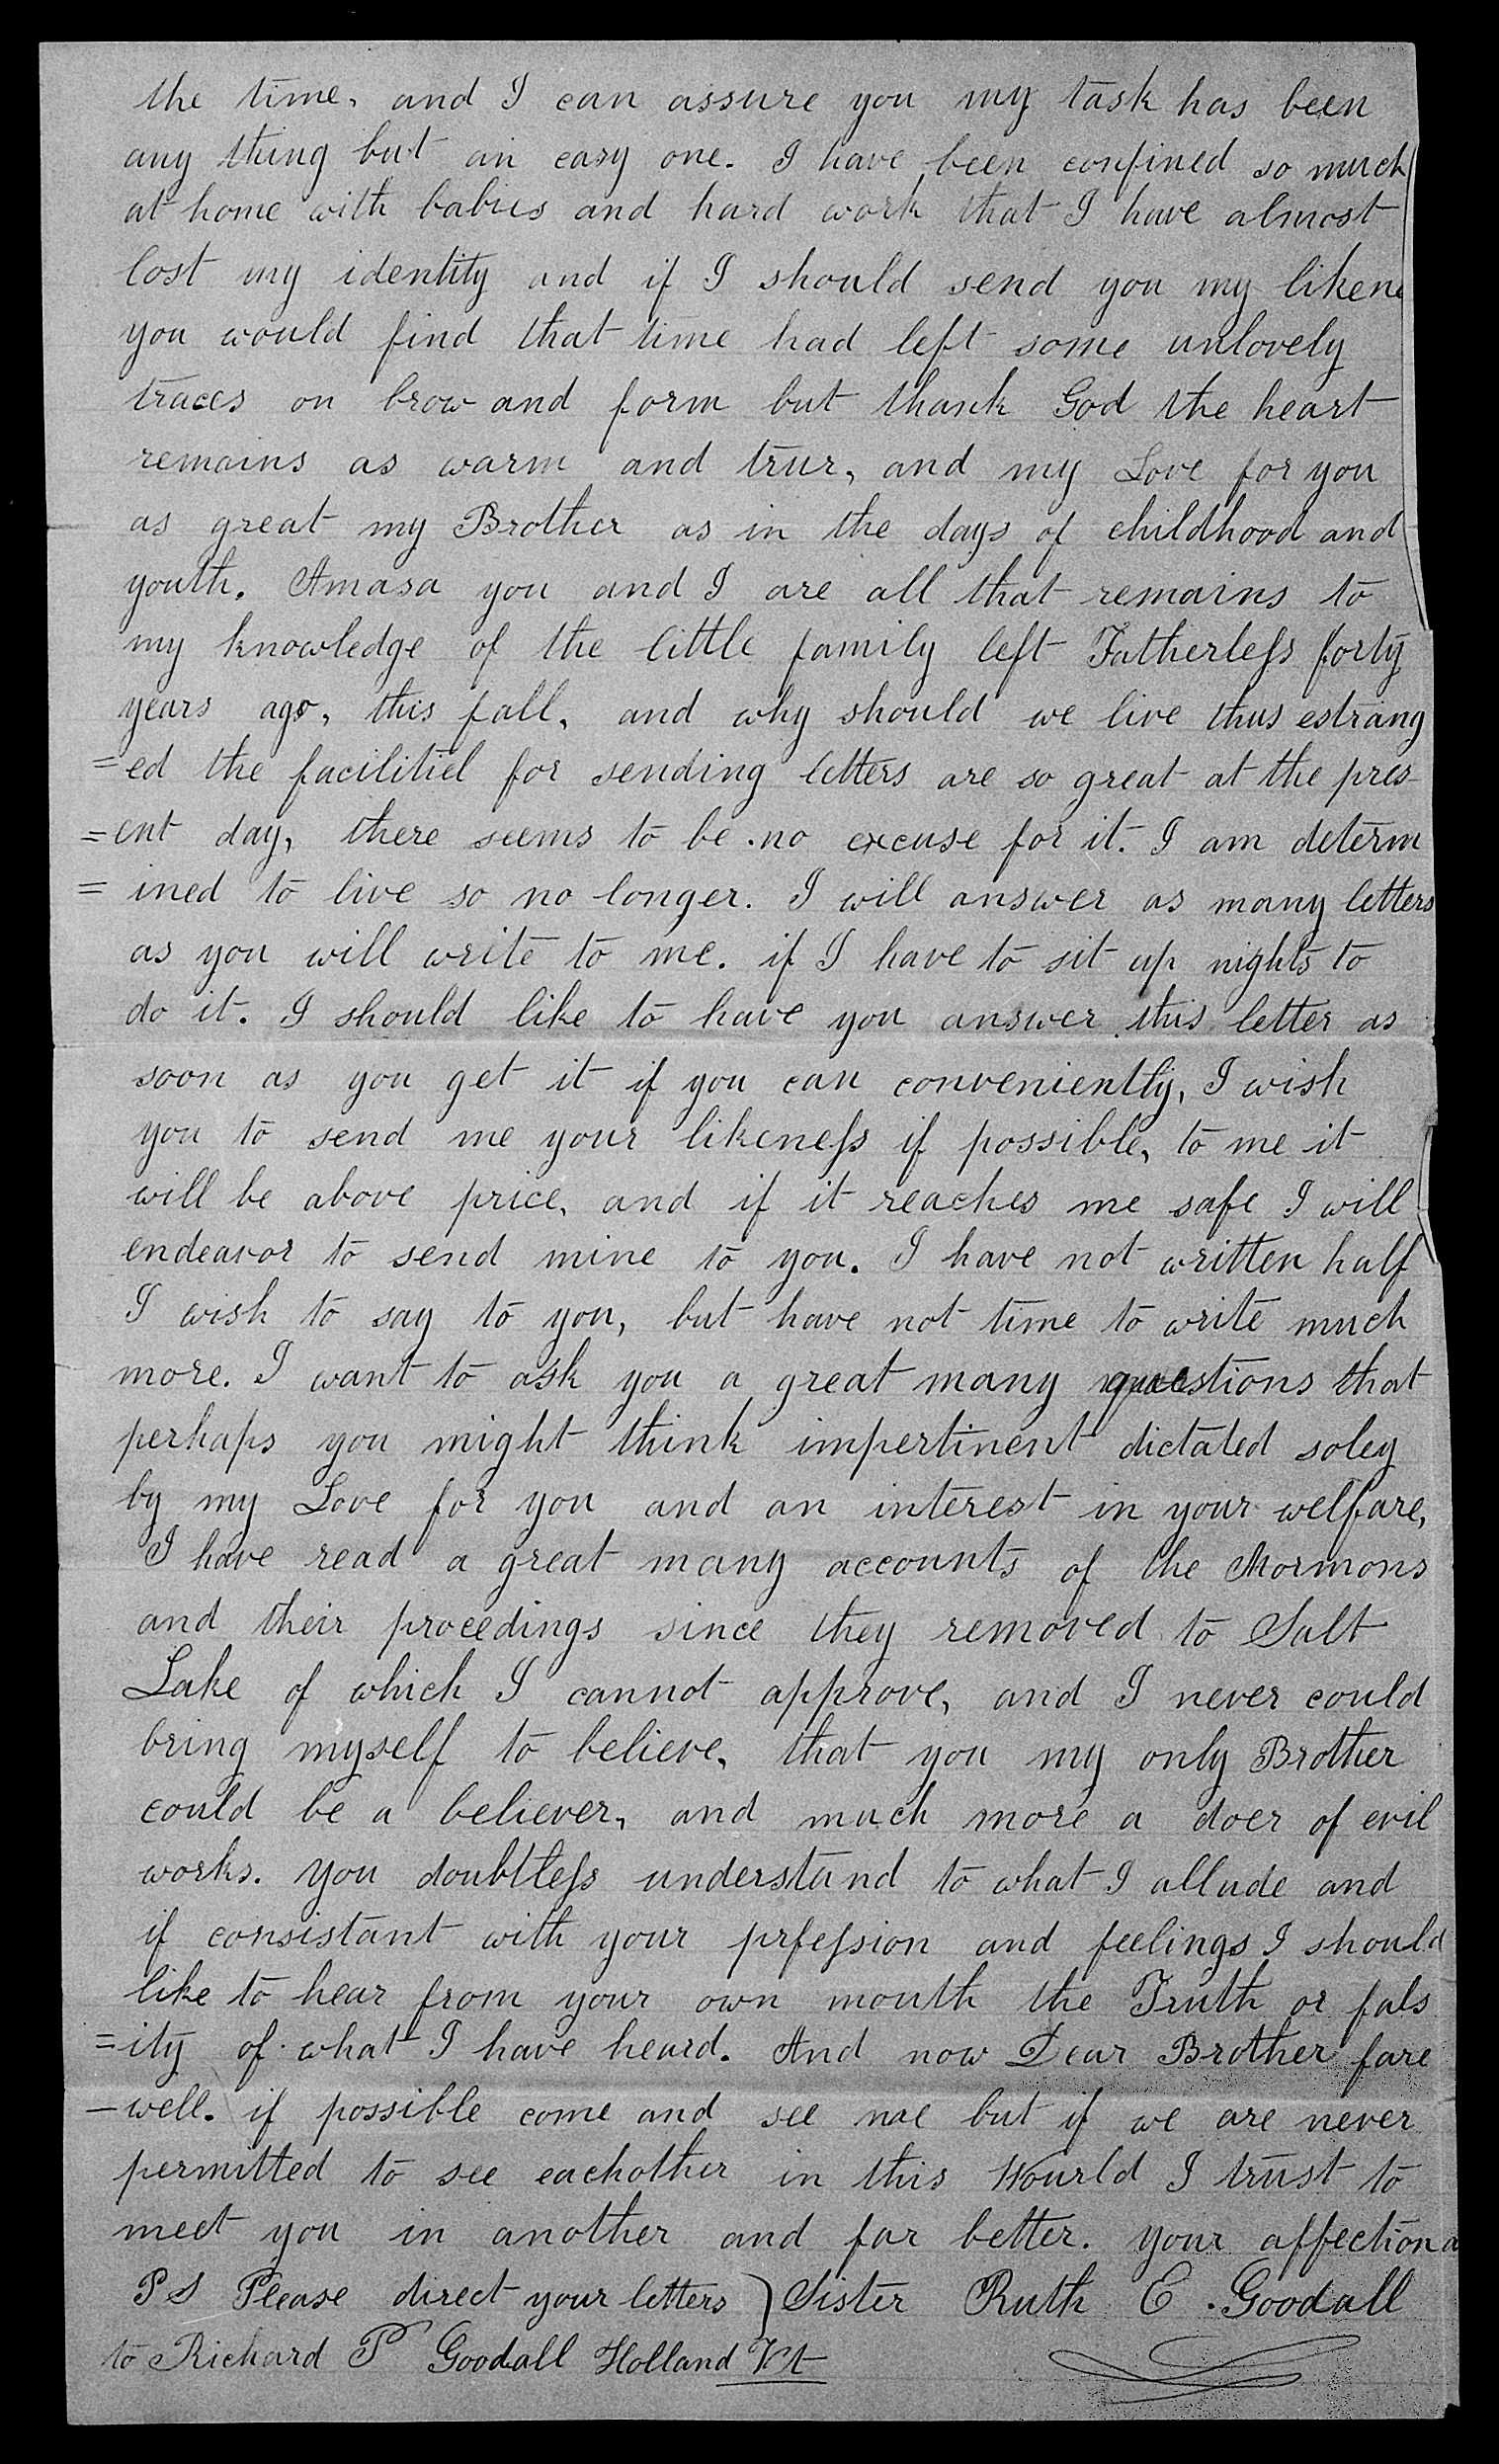 the time, and I can assure you my task has been
any thing but an easy one. I have been confined so much
at home with babies and hard work that I have almost
lost my identity and if I should send you my likene
you would find that time had left some unlovely
traces on brow and form but thank God the heart
remains as warm and trur, and my Love for you
as great my Brother as in the days of childhood and
youth. Amasa you and I are all that remains to
my knowledge of the little family left Fatherleſs forty
years ago, this fall, and why should we live thus estrang
=ed the facilitiel for sending letters are so great at the pres
=ent day, there seems to be no excuse for it. I am determ
=ined to live so no longer. I will answer as many letters
as you will write to me. if I have to sit up nights to
do it. I should like to have you answer this letter as
soon as you get it if you can conveniently, I wish
you to send me your likeneſs if possible, to me it
will be above price, and if it reaches me safe I will
endeavor to send mine to you. I have not written half
I wish to say to you, but have not time to write much
more. I want to ask you a great many questions that
perhaps you might think impertinent dictated soley
by my Love for you and an interest in your welfare,
I have read a great many accounts of the Mormons
and their proceedings since they removed to Salt
Lake of which I cannot approve, and I never could
bring myself to believe, that you my only Brother
could be a believer, and much more a doer of evil
works. you doubtleſs understand to what I allude and
if consistant with your prfeſsion and feelings I should
like to hear from your own mouth the Truth or fals
=ity of what I have heard. And now Dear Brother fare
-well. if possible come and see me but if we are never
permitted to see eachother in this Wourld I trust to
meet you in another and far better. your affectiona
P S Please direct your letters } Sister Ruth E. Goodall
to Richard P Goodall Holland Vt